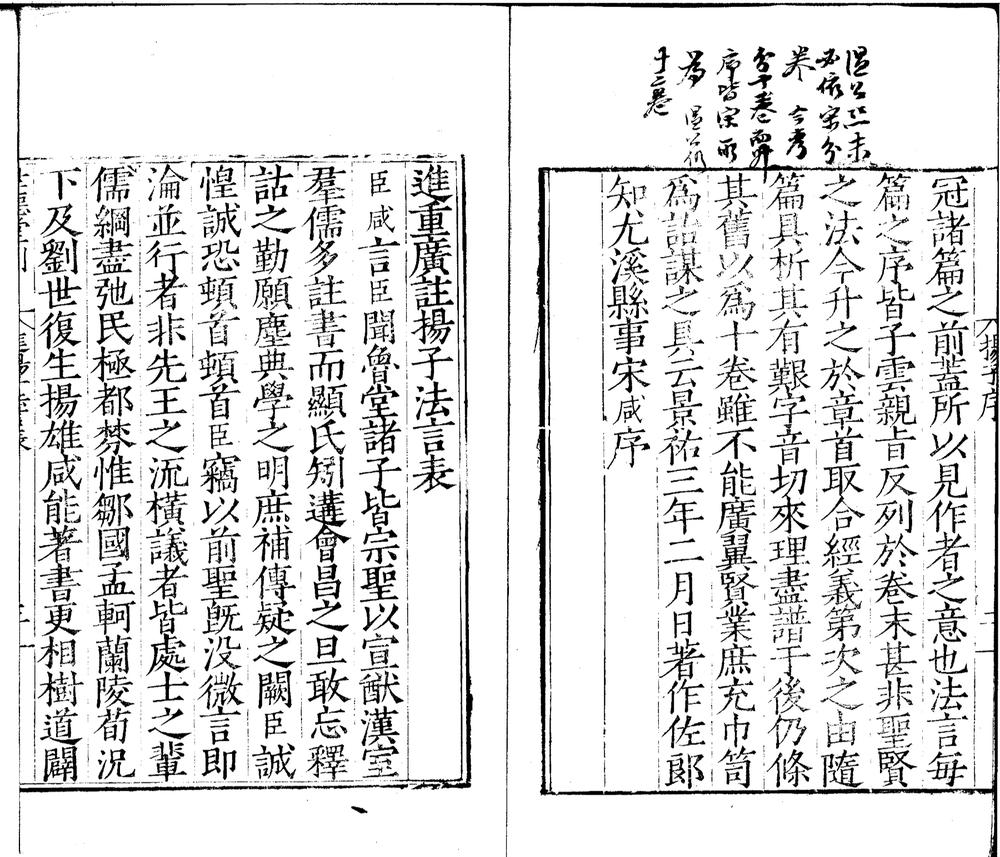 溫公
冠諸篇之前蓋所以見作者之意也法言每
篇之序皆子雲親旨反列於卷末甚非聖賢
之法今升之於章首取合經義第次之由隨
篇具析其有艱字音切來理盡譜于後仍條
其舊以爲十卷雖不能廣翼賢業庶充巾笥
爲詒謀之具云景祐三年二月日著作佐郎
知尤溪縣事宋咸序
進重廣註揚子法言表
臣咸言臣聞魯堂諸子皆宗聖以宣猷漢室
羣儒多註書而顯氏矧遘會昌之旦敢忘釋
詁之勤願塵典學之明庶補傳疑之闕臣誠
惶誠恐頓首頓首臣竊以前聖旣没微言即
淪並行者非先王之流橫議者皆處士之輩
儒綱盡弛民極都棼惟鄒國孟軻蘭陵荀況
下及劉世復生揚雄咸能著書更相樹道闢